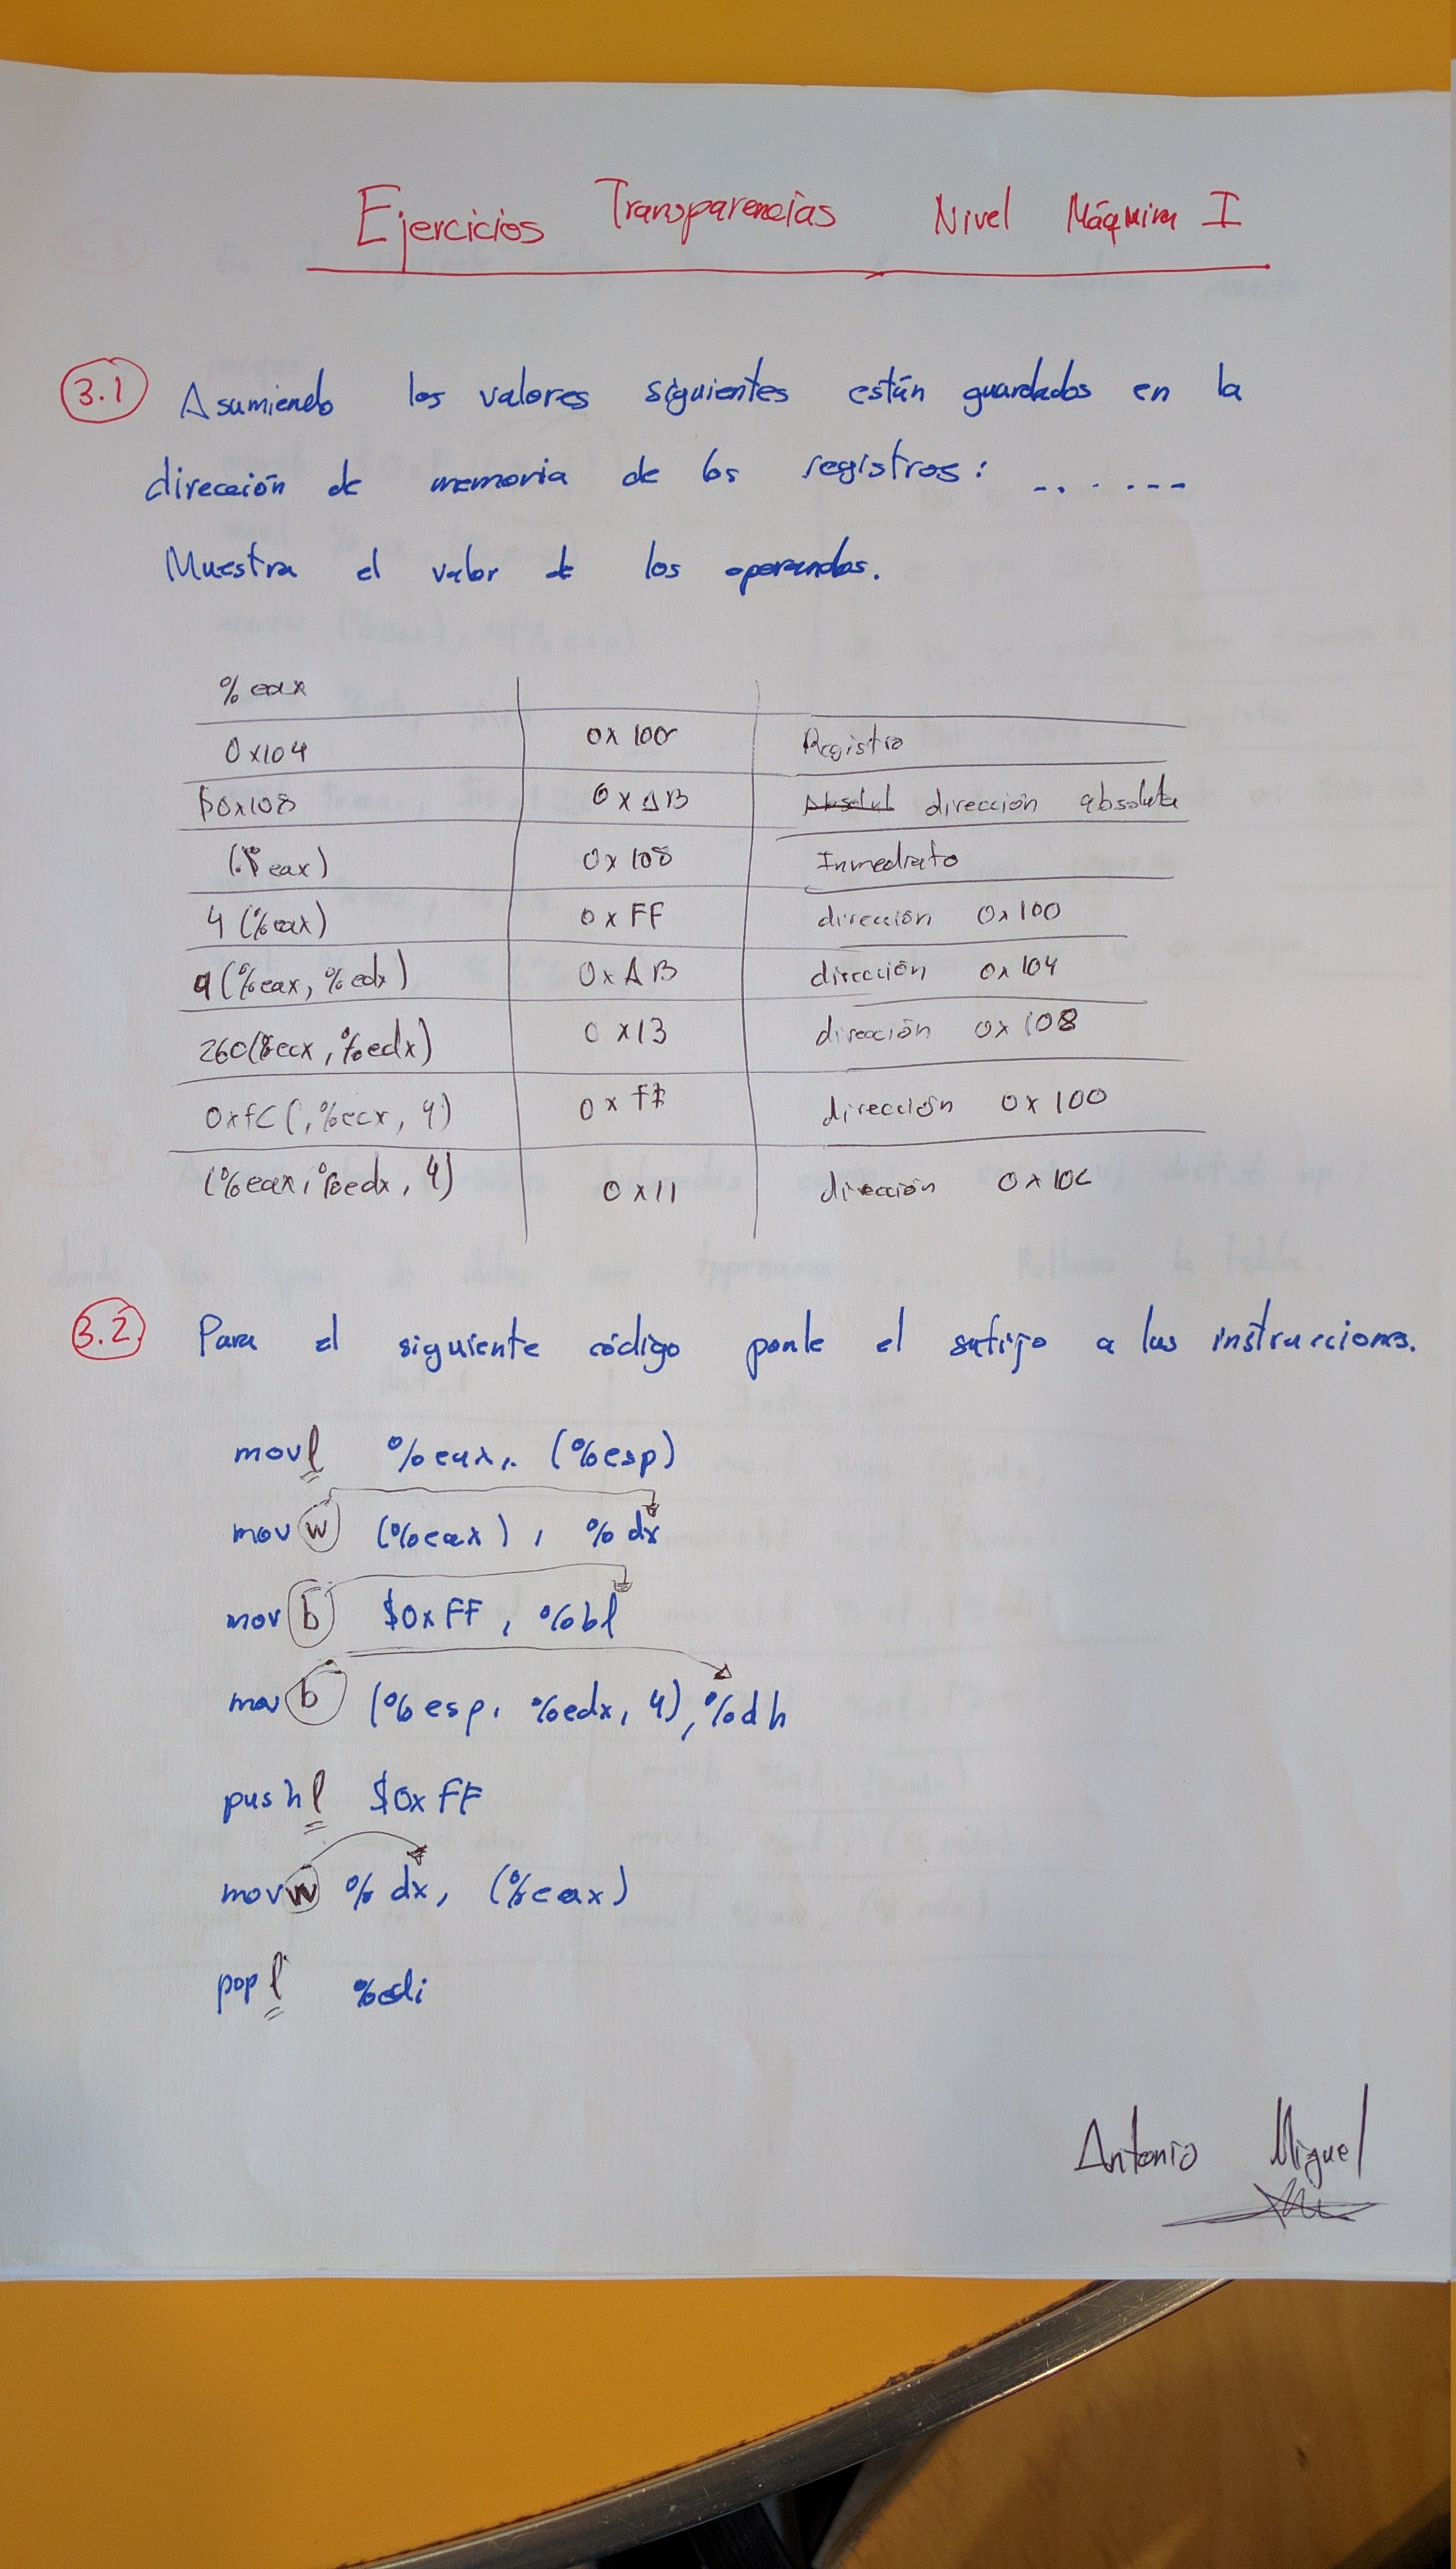 Ejercicios Transparencias Nivel Máquina I
3.1 Asumiendo los valores siguientes están guardados en la
dirección de memoria de los registros: .......
Muestra el valor de los operandos.
%eax
0x104 0x100 Registro
$0x108 0xAB Absolut dirección absoluta
(%eax) 0x108 Inmediato
4(%eax) 0xFF dirección 0x100
9(%eax, %edx) 0xAB dirección 0x104
260(%ecx, %edx) 0x13 dirección 0x108
0xfC(,%ecx, 4) 0xff dirección 0x100
(%eax, %edx, 4) 0x11 dirección 0x10C
3.2. Para el siguiente código ponle el sufijo a las instrucciones.
movl %eax, (%esp)
movw (%eax), %dx
movb $0xFF, %bl
movb (%esp, %edx, 4), %dh
pushl $0xFF
movw %dx, (%eax)
popl %edi
Antonio Miguel